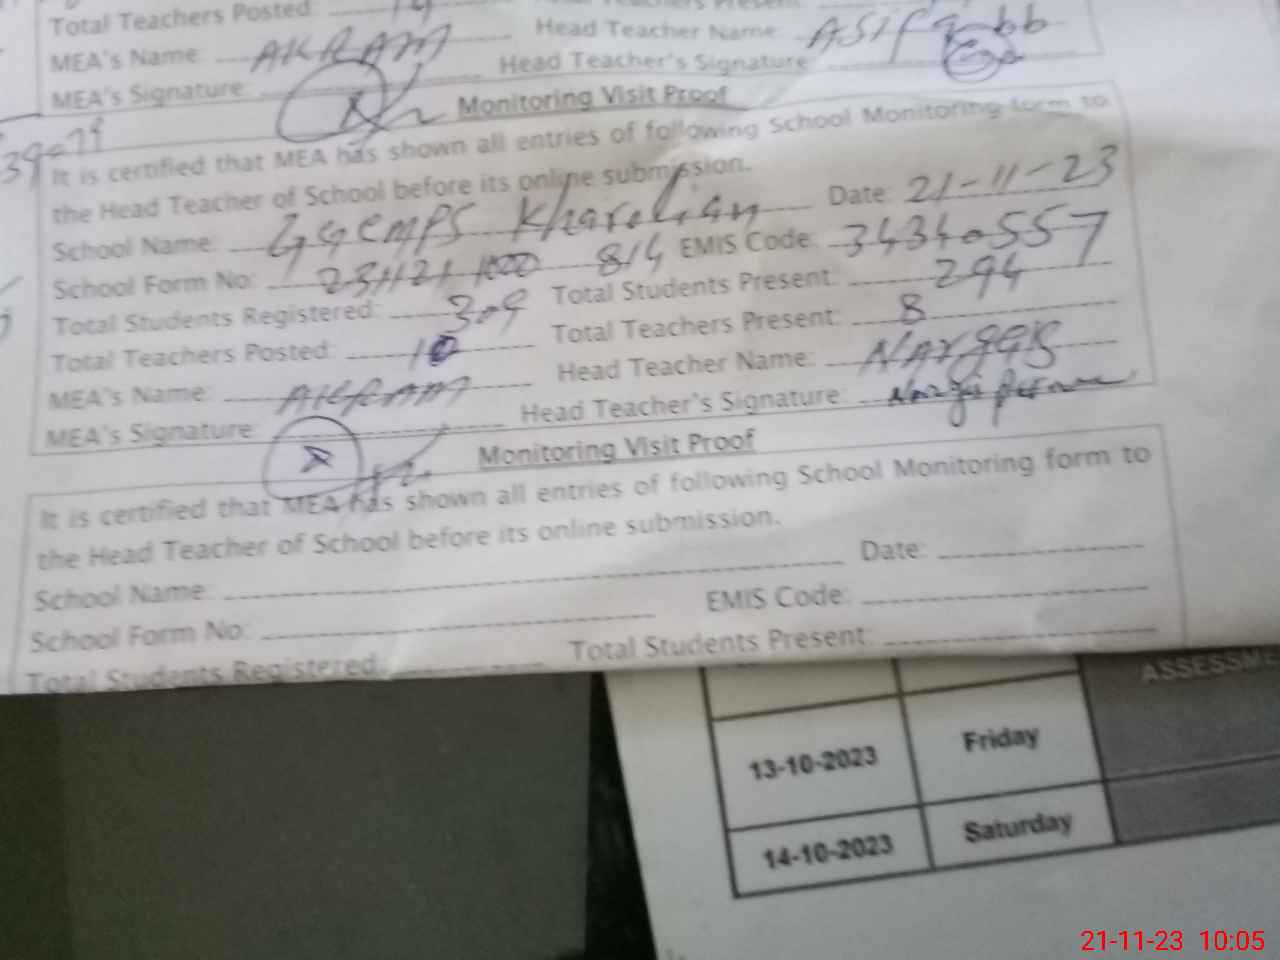 Total Teachers Posted: 14
MEA's Name: AKRAM Head Teacher Name: ASIF
MEA's Signature: Head Teacher's Signature:
Monitoring Visit Proof
It is certified that MEA has shown all entries of following School Monitoring form to
the Head Teacher of School before its online submission.
School Name: GGCMPS Kharolian Date: 21-11-23
School Form No: 231121 1000 814 EMIS Code: 34340557
Total Students Registered: 309 Total Students Present: 294
Total Teachers Posted: 10 Total Teachers Present: 8
MEA's Name: AKRAM Head Teacher Name: Narggis
MEA's Signature: Head Teacher's Signature:
Monitoring Visit Proof
It is certified that MEA has shown all entries of following School Monitoring form to
the Head Teacher of School before its online submission.
School Name: Date:
School Form No: EMIS Code:
Total Students Registered: Total Students Present:
ASSESSME
13-10-2023 Friday
14-10-2023 Saturday
21-11-23 10:05